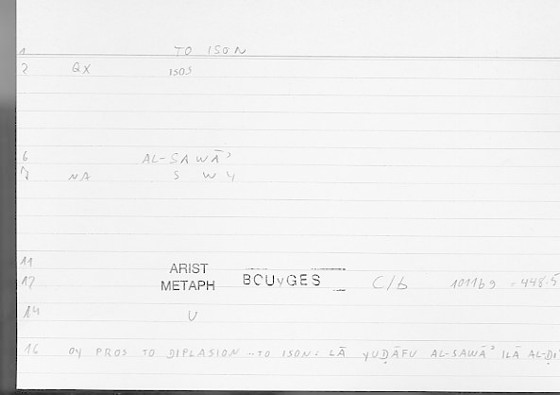 1 TO ISON
2 QX ISOS
6 AL-SAWĀʾ
7 NA S W Y
11
12 ARIST METAPH BOUYGES C/b 1011b9 = 448.5
14 U
16 OY PROS TO DIPLASION - TO ISON: LĀ YUḌĀFU AL-SAWĀʾ ILĀ